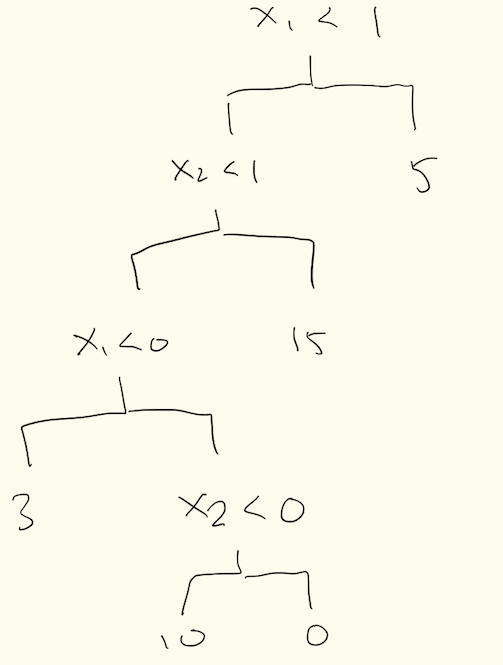 X₁ < 1
X₂ < 1
5
X₁ < 0
15
3
X₂ < 0
10
0